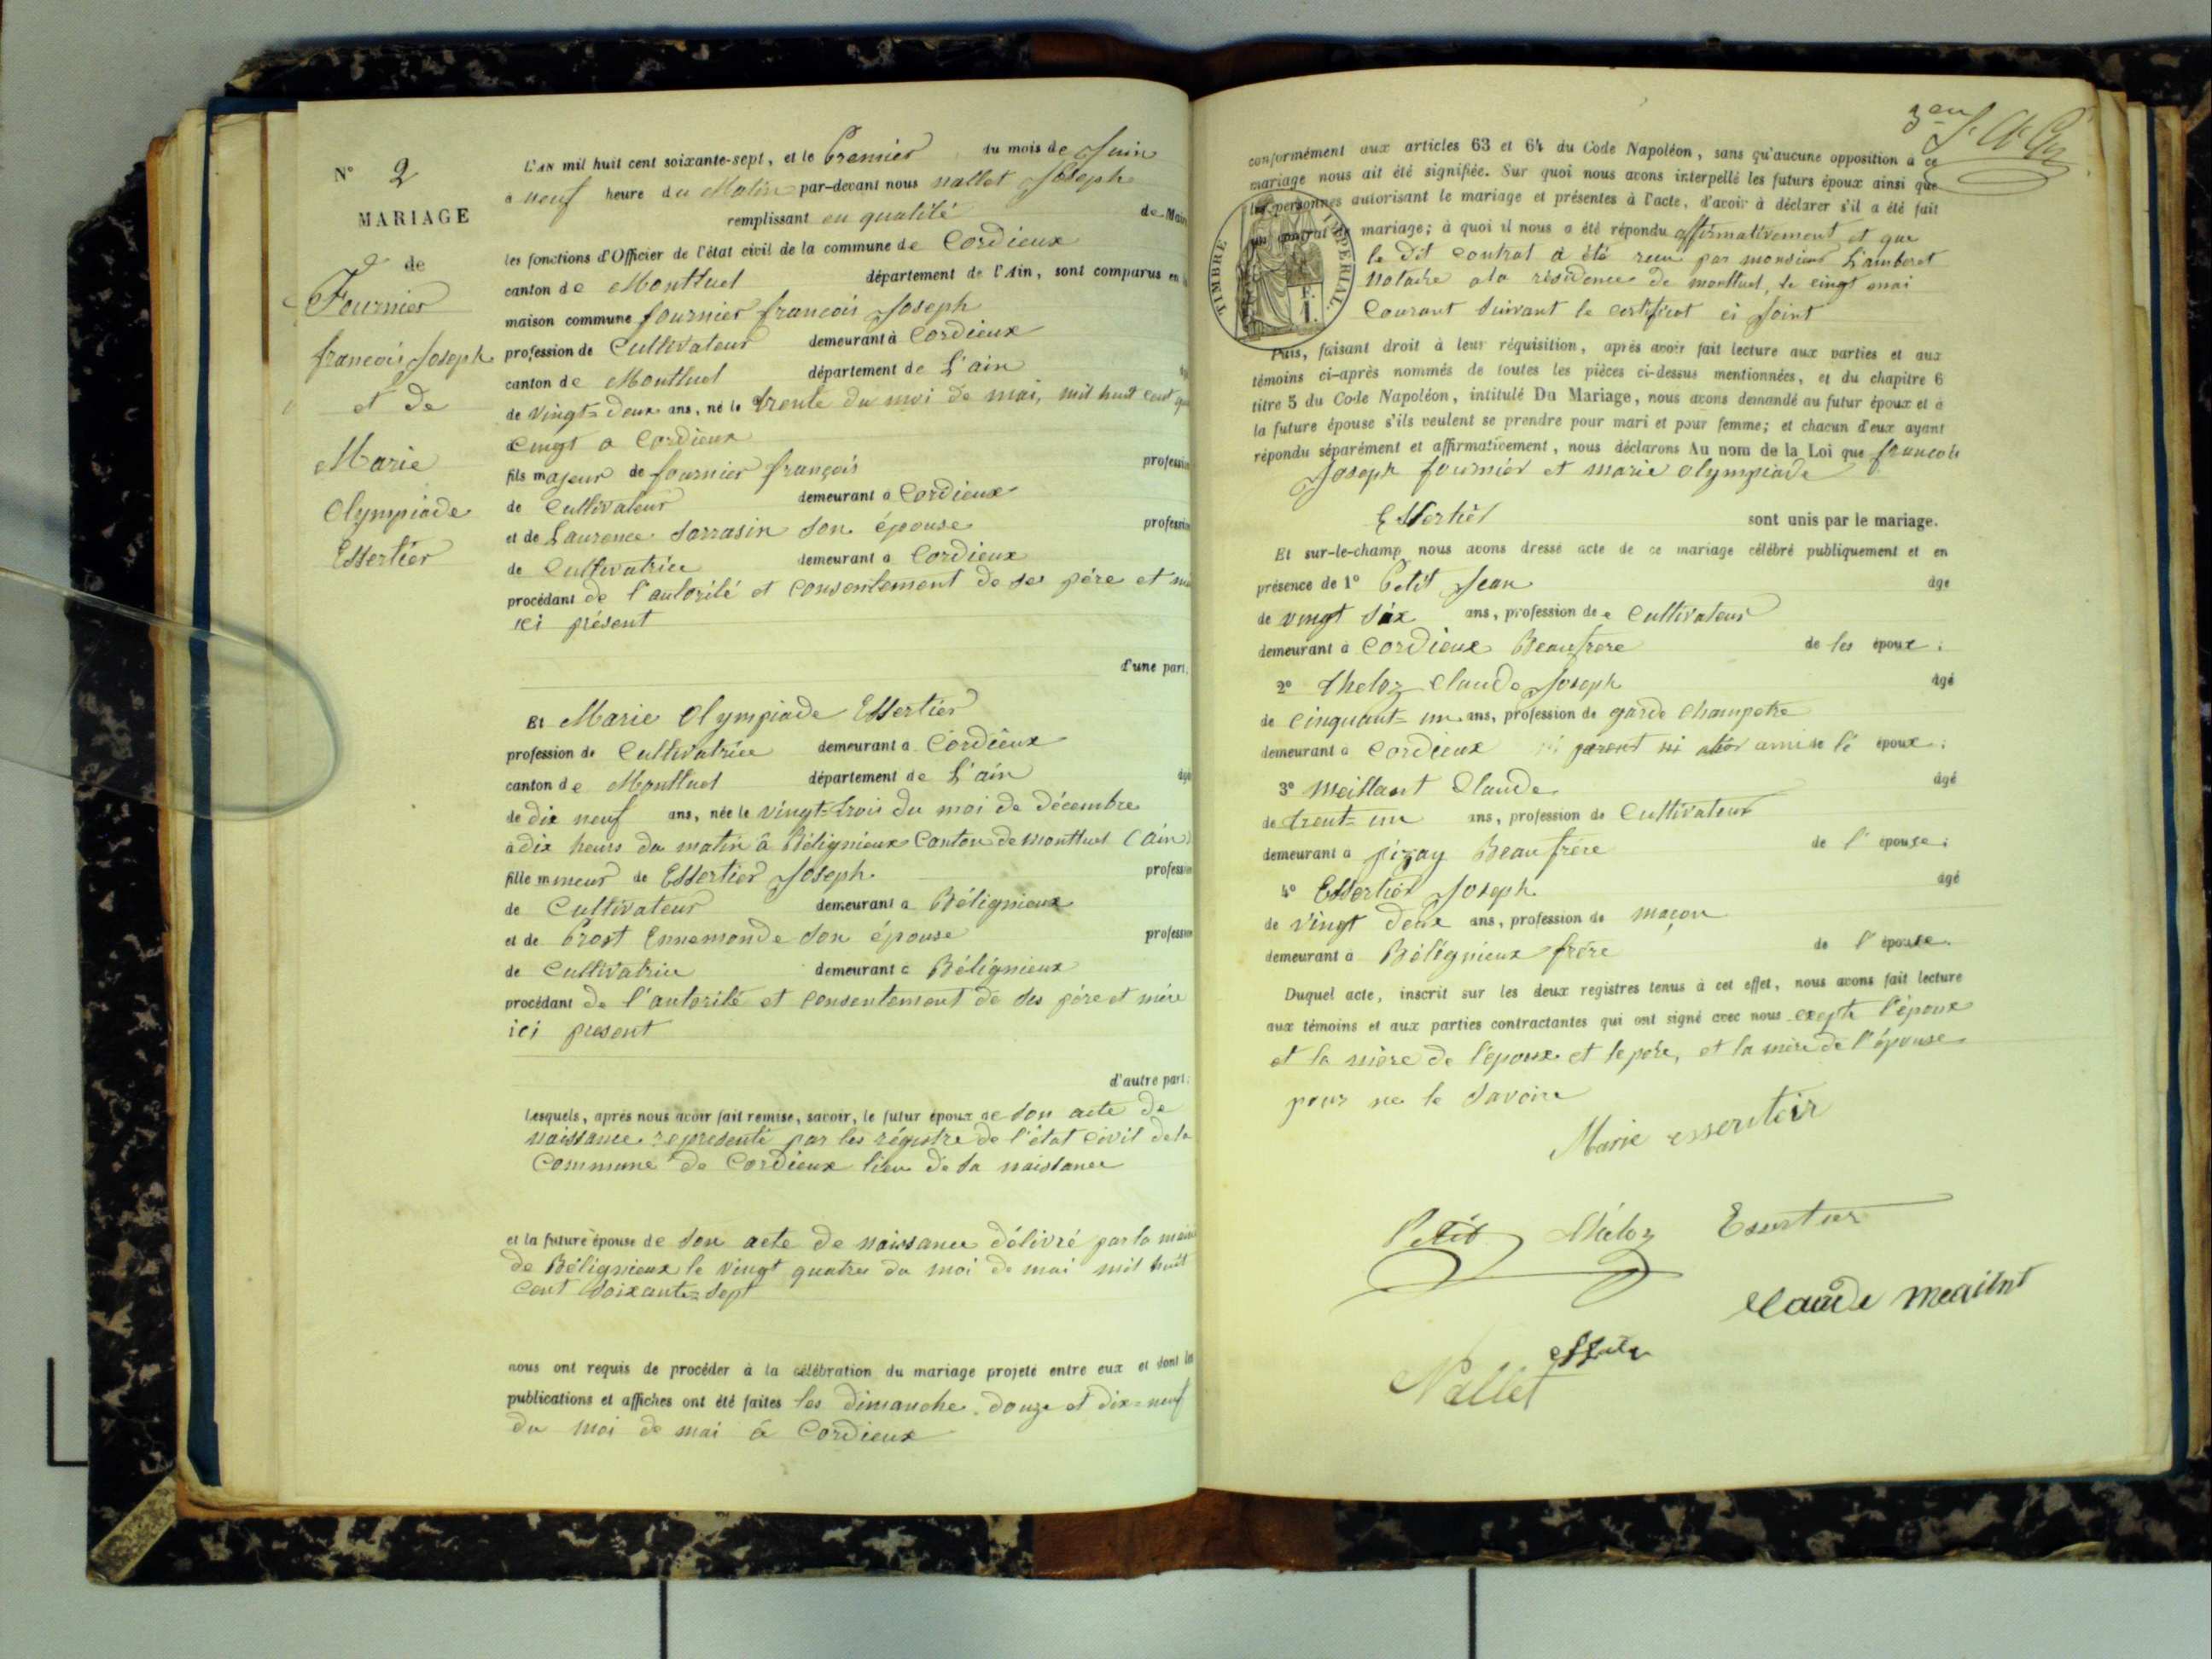 N° 2
MARIAGE
de
Fournier
françois Joseph
et de
Marie
Olympiade
Essertier
L'AN mil huit cent soixante-sept, et le Premier du mois de Juin
à neuf heure du Matin par-devant nous nallet Joseph
remplissant en qualité de Maire
les fonctions d'Officier de l'état civil de la commune de Cordieux
canton de Montluel département de l'Ain, sont comparus en la
maison commune fournier françois Joseph
profession de Cultivateur demeurant à Cordieux
canton de Montluel département de L'ain
de vingt=deux ans, né le trente du moi de mai, mil huit cent
cinq a Cordieux
fils majeur de fournier françois profession
de Cultivateur demeurant à Cordieux
et de Laurence Sarrasin son épouse profession
de Cultivatrice demeurant à Cordieux
procédant de l'autorité et consentement de ses père et
ici présent
d'une part.
Et Marie Olympiade Essertier
profession de Cultivatrice demeurant à Cordieux
canton de Montluel département de L'ain âgé
de dix neuf ans, née le vingt=trois du moi de décembre
à dix heurs du matin â Bélignieux Canton de Montluel (ain)
fille mineur de Essertier Joseph profession
de Cultivateur demeurant à Bélignieux
et de Prost Ennemonde son épouse profession
de Cultivatrice demeurant à Bélignieux
procédant de l'autorité et consentement de ses père et mère
ici present
d'autre part.
Lesquels, après nous avoir fait remise, savoir, le futur époux de son acte de
naissance representé par les régistre de l'état civil de la
Commune de Cordieux lieu de sa naissance
et la future épouse de son acte de naissance délivré par la
de Béligneux le vingt quatre du moi de mai mil huit
cent soixante=sept
nous ont requis de procéder à la célébration du mariage projeté entre eux et dont les
publications et affiches ont été faites les dimanche douze et dix=neuf
du moi de mai â Cordieux
conformément aux articles 63 et 64 du Code Napoléon, sans qu'aucune opposition à ce
mariage nous ait été signifiée. Sur quoi nous avons interpellé les futurs époux ainsi que
les personnes autorisant le mariage et présentes à l'acte, d'avoir à déclarer s'il a été fait
un contrat de mariage; à quoi il nous a été répondu affirmativement et que
le dit contrat a été reçu par monsieur Lamberet
notaire a la résidence de montluel, le cinq mai
Courant suivant le certificat ci Joint
TIMBRE IMPERIAL
Puis, faisant droit à leur réquisition, après avoir fait lecture aux parties et aux
témoins ci-après nommés de toutes les pièces ci-dessus mentionnées, et du chapitre 6
titre 5 du Code Napoléon, intitulé Du Mariage, nous avons demandé au futur époux et à
la future épouse s'ils veulent se prendre pour mari et pour femme; et chacun d'eux ayant
répondu séparément et affirmativement, nous déclarons Au nom de la Loi que françois
Joseph fournier et marie olympiade
Essertier sont unis par le mariage.
Et sur-le-champ nous avons dressé acte de ce mariage célébré publiquement et en
présence de 1° Petit Jean âgé
de vingt six ans, profession de Cultivateur
demeurant à Cordieux Beaufrere de les époux;
2° Theloz Claude Joseph âgé
de cinquant=un ans, profession de garde Champetre
demeurant à Cordieux ni parent ni amis époux;
3° Meillant Claude âgé
de trent=un ans, profession de Cultivateur
demeurant à pizay Beaufrère de l'épouse;
4° Essertier Joseph âgé
de vingt deux ans, profession de maçon
demeurant à Béligneux frère de l'épouse.
Duquel acte, inscrit sur les deux registres tenus à cet effet, nous avons fait lecture
aux témoins et aux parties contractantes qui ont signé avec nous exepte l'époux
et la mère de l'époux et le père, et la mère de l'épouse
pour ne le Savoire
Marie
Petit Théloz
Claude
Nallet